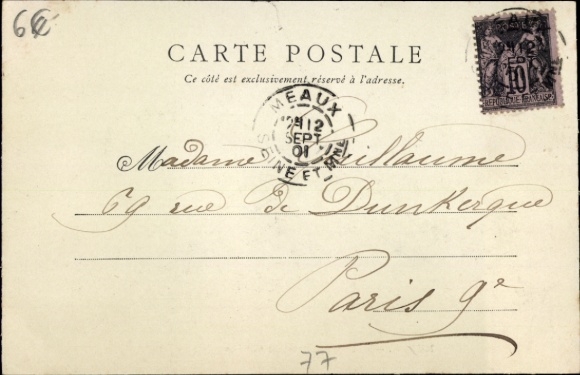 6€
CARTE POSTALE
Ce côté est exclusivement réservé à l'adresse.
10
RÉPUBLIQUE FRANÇAISE
MEAUX
12
SEPT
01
SEINE ET MNE
Madame Guillaume
69 rue de Dunkerque
Paris 9e
77